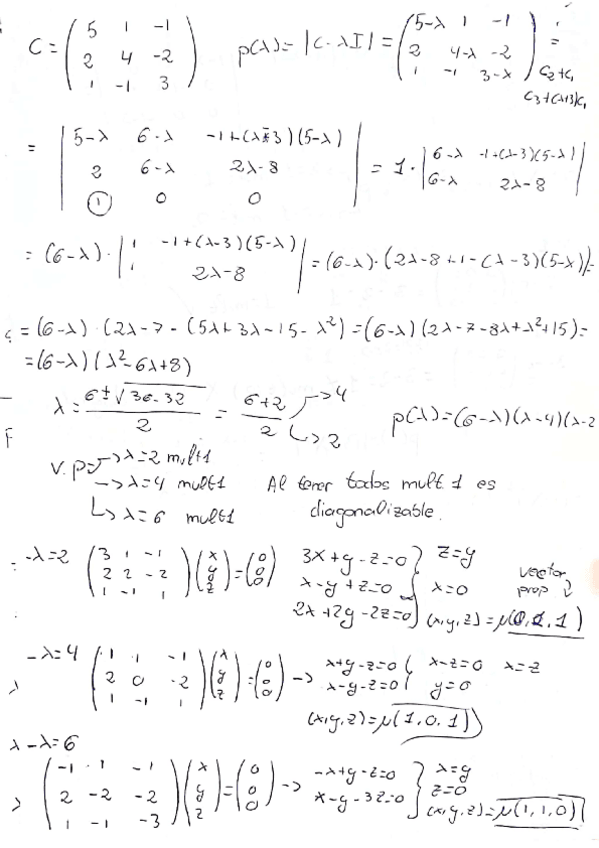 C = ( 5 1 -1 ; 2 4 -2 ; 1 -1 3 ) p(λ) = |C-λI| = ( 5-λ 1 -1 ; 2 4-λ -2 ; 1 -1 3-λ ) =
C2+C1
C3+(λ-3)C1
= | 5-λ 6-λ -1+(λ-3)(5-λ) ; 2 6-λ 2λ-8 ; 1 0 0 | = 1 · | 6-λ -1+(λ-3)(5-λ) ; 6-λ 2λ-8 |
= (6-λ) · | 1 -1+(λ-3)(5-λ) ; 1 2λ-8 | = (6-λ) · (2λ-8+1-(λ-3)(5-λ)) =
= (6-λ) · (2λ-7-(5λ+3λ-15-λ²) = (6-λ)(2λ-7-8λ+λ²+15) =
= (6-λ)(λ²-6λ+8)
λ = 6±√36-32 / 2 = 6±2 / 2 → 4 → 2 p(λ) = (6-λ)(λ-4)(λ-2
v.p. → λ=2 mult1
→ λ=4 mult1 Al tener todos mult. 1 es
↳ λ=6 mult1 diagonalizable.
-λ=2 ( 3 1 -1 ; 2 2 -2 ; 1 -1 1 ) ( x ; y ; z ) = ( 0 ; 0 ; 0 ) 3x+y-z=0 z=y
x-y+z=0 x=0 vector prop
2x+2y-2z=0 (x,y,z) = μ(0,1,1)
-λ=4 ( 1 1 -1 ; 2 0 -2 ; 1 -1 1 ) ( x ; y ; z ) = ( 0 ; 0 ; 0 ) → x+y-z=0 x-z=0 x=z
x-y-z=0 y=0
(x,y,z) = μ(1,0,1)
-λ=6
( -1 1 -1 ; 2 -2 -2 ; 1 -1 -3 ) ( x ; y ; z ) = ( 0 ; 0 ; 0 ) → -x+y-z=0 x=y
x-y-3z=0 z=0
(x,y,z) = μ(1,1,0)